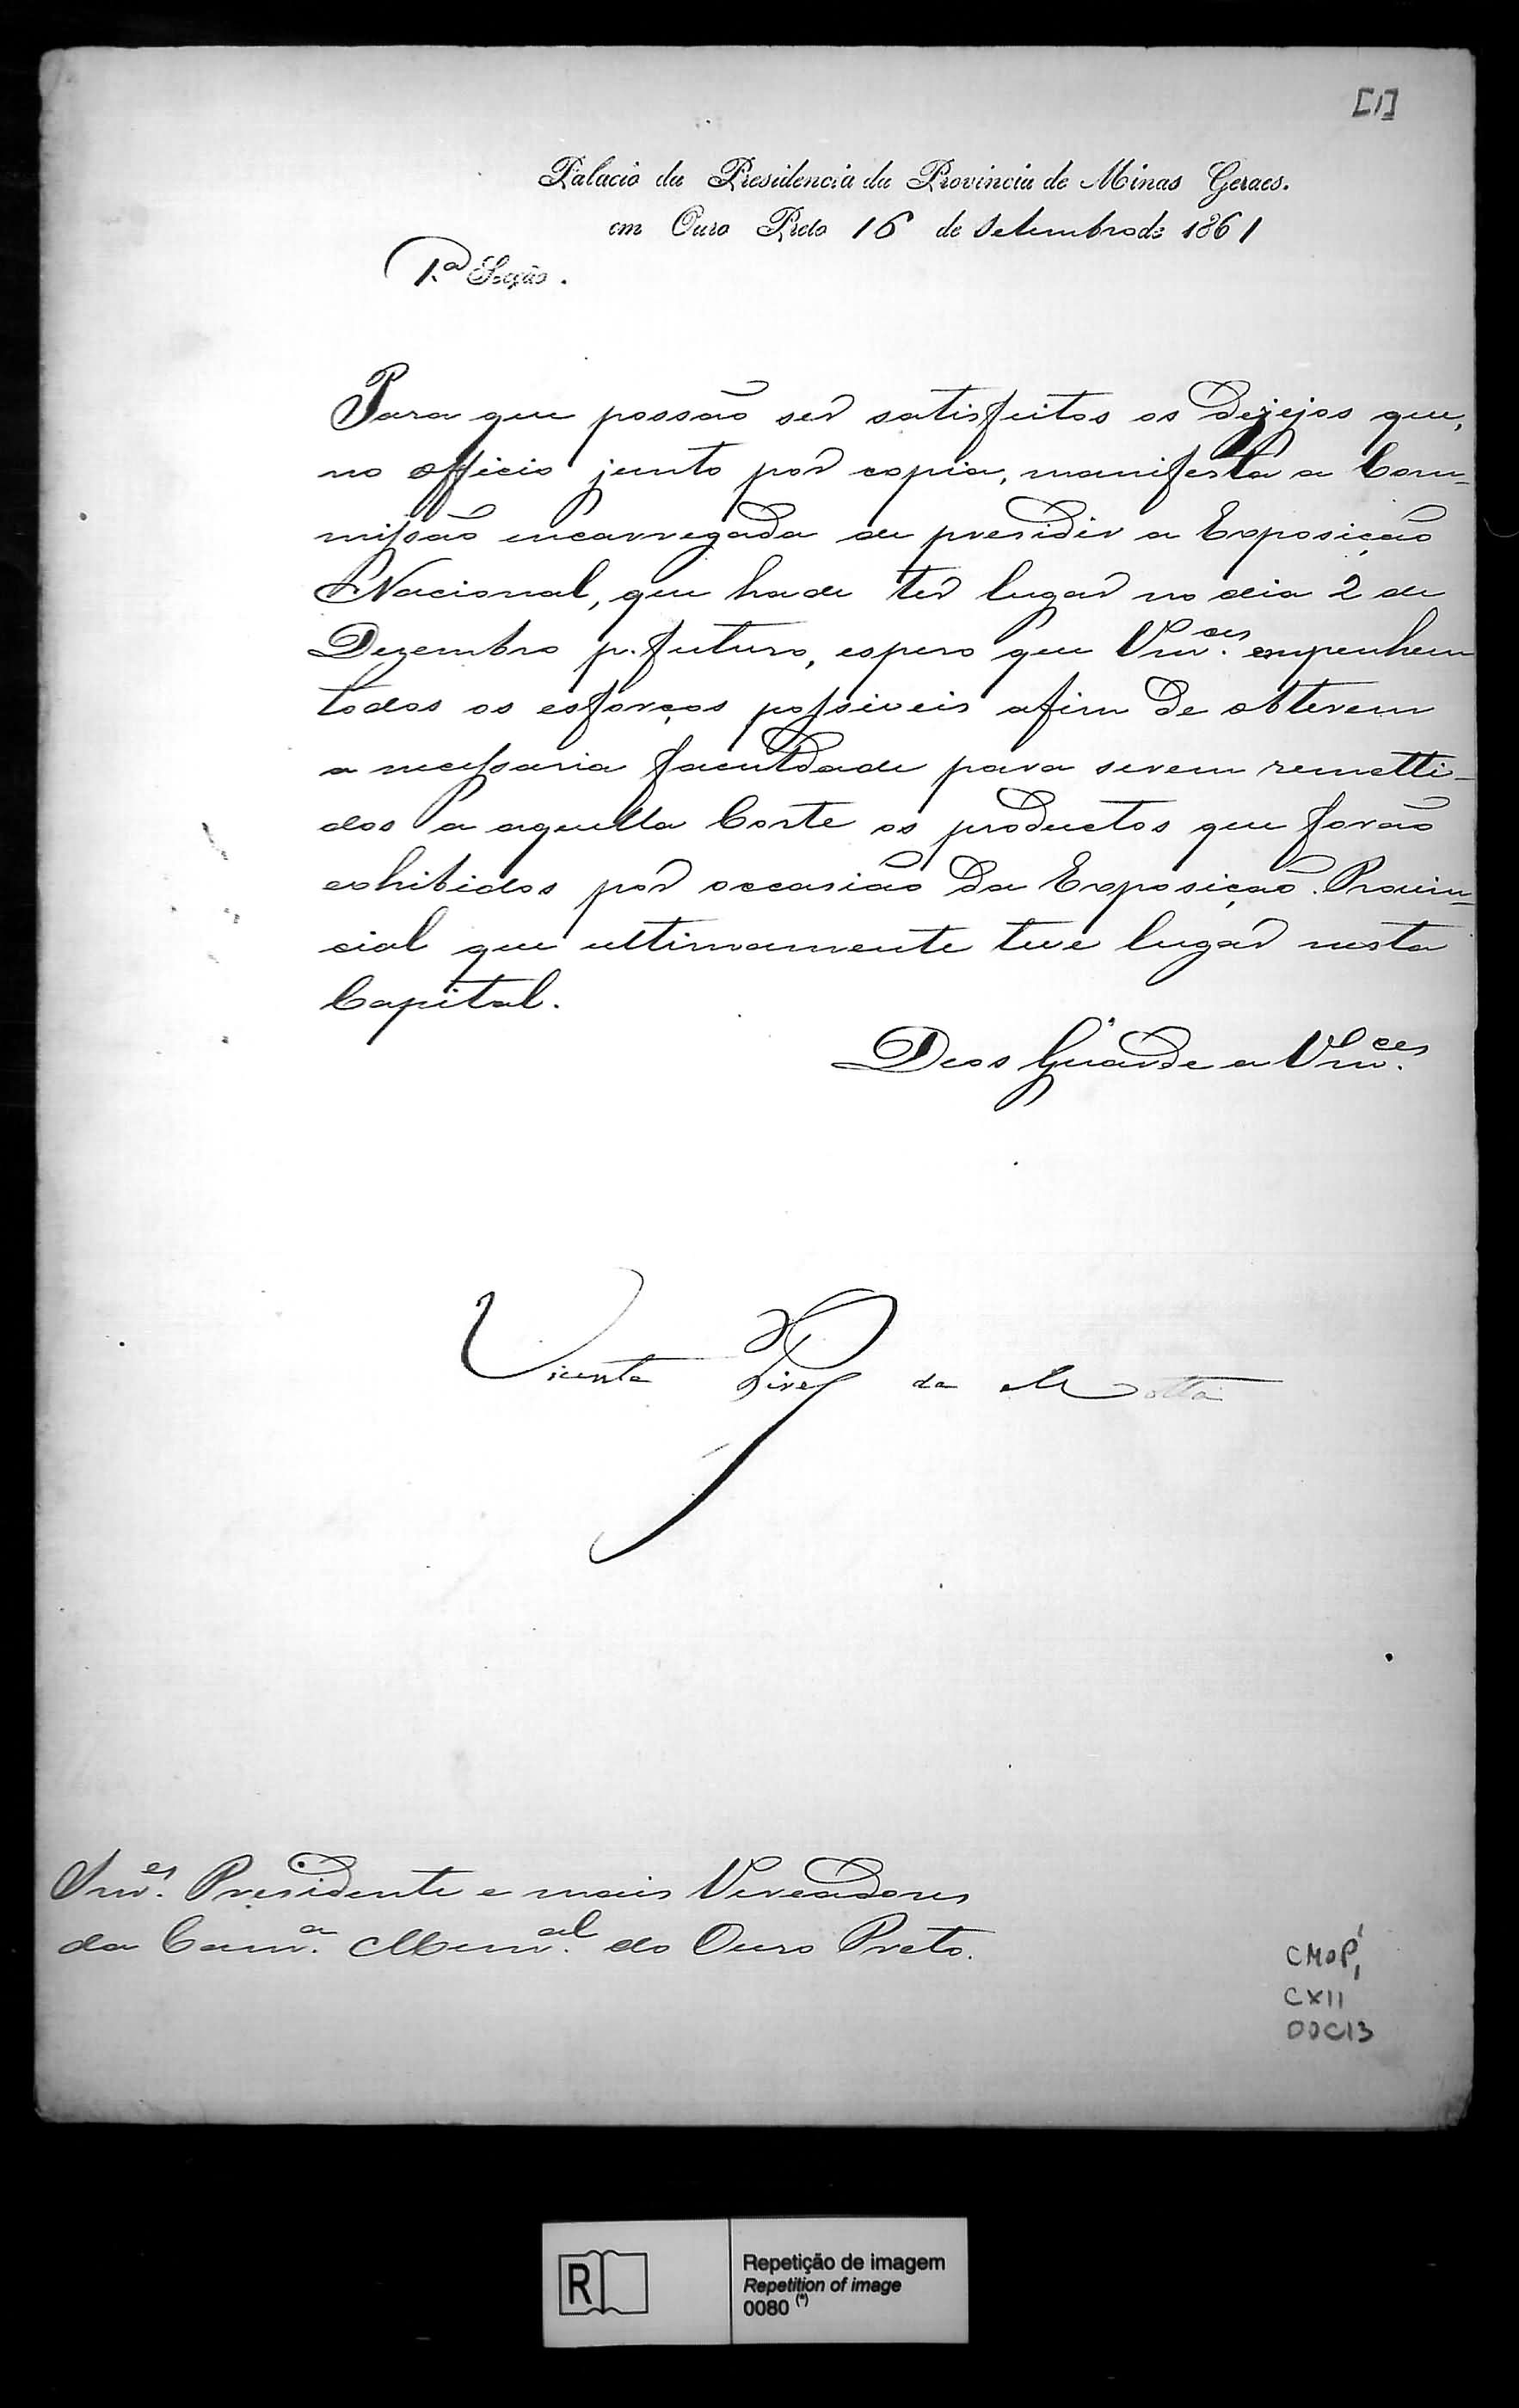 [1]
Palacio da Presidencia da Provincia de Minas Geraes.
em Ouro Preto 16 de Setembro de 1861
1.ª Secção.
Para que possão ser satisfeitos os dezejos que,
no officio junto por copia, manifesta a Com-
missão encarregada de presidir a Exposição
Nacional, que hade ter lugar no dia 2 de
Dezembro p. futuro, espero que Vm.ces empenhem
todos os esforços possiveis afim de obterem
a necessaria faculdade para serem remetti-
dos a aquella Corte os productos que forão
exhibidos por occasião da Exposição Provin-
cial que ultimamente teve lugar nesta
Capital.
Deos Guarde a Vm.ces
Vicente Pires da Motta
Snr.es Presidente e mais Vereadores
da Cam.a Mun.al do Ouro Preto.
CMOP,
CX11
DOC13
R
Repetição de imagem
Repetition of image
0080 (*)